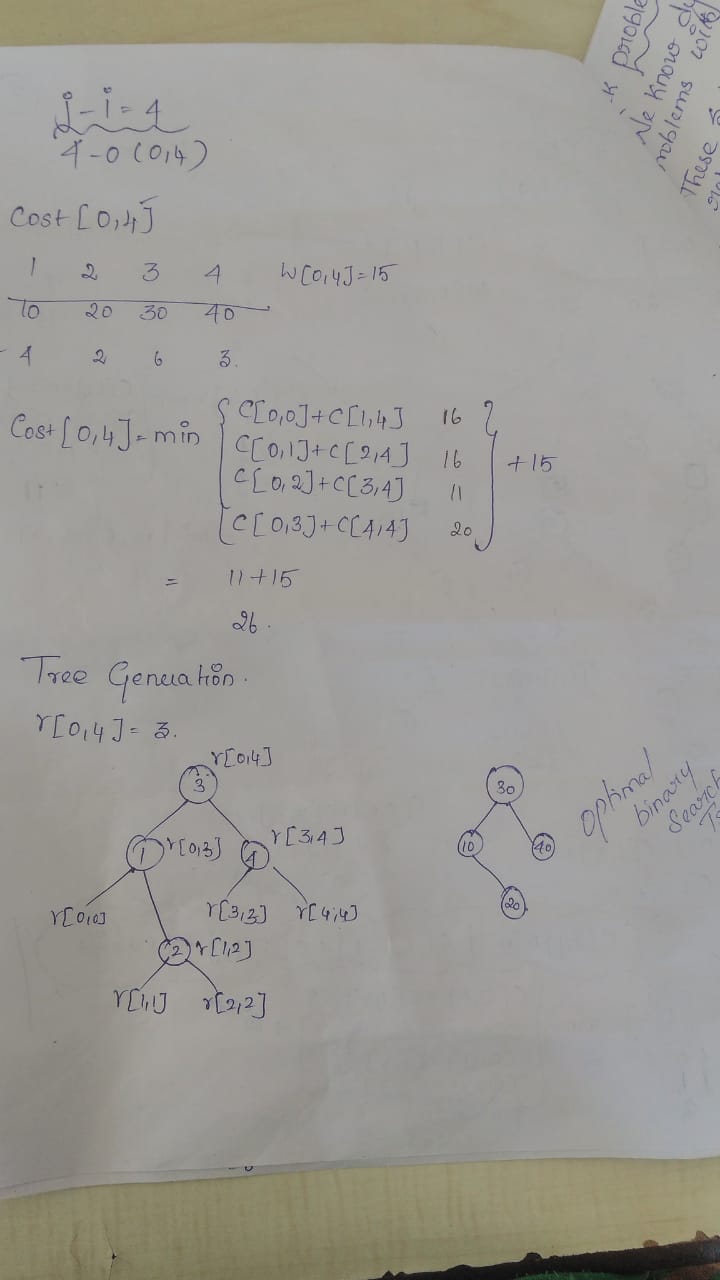 j-i=4
4-0 (0,4)
Cost [0,4]
1 2 3 4 W[0,4]=15
10 20 30 40
4 2 6 3.
Cost [0,4] = min { C[0,0]+C[1,4] 16
C[0,1]+C[2,4] 16
C[0,2]+C[3,4] 11
C[0,3]+C[4,4] 20 } +15
= 11+15
26.
Tree Generation.
r[0,4] = 3.
3 r[0,4]
1 r[0,3] 4 r[3,4]
r[0,0] r[3,3] r[4,4]
2 r[1,2]
r[1,1] r[2,2]
30
10 40
20
Optimal
binary
Search
k proble
We know
roblems with
These